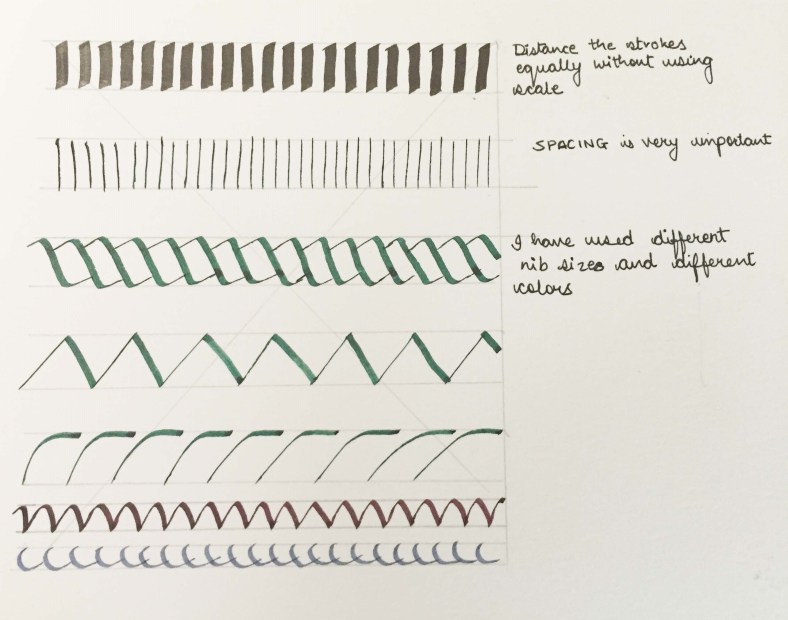 Distance the strokes
equally without using
scale
SPACING is very important
I have used different
nib sizes and different
colors